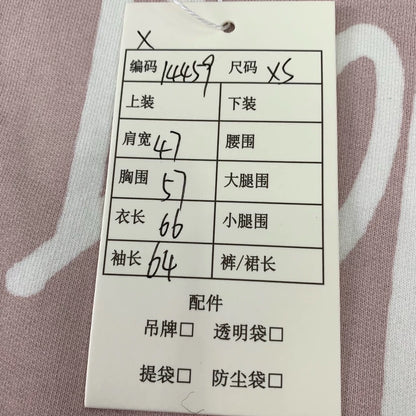 X
编码 14459 尺码 XS
上装 下装
肩宽 47 腰围
胸围 57 大腿围
衣长 66 小腿围
袖长 64 裤/裙长
配件
吊牌□ 透明袋□
提袋□ 防尘袋□